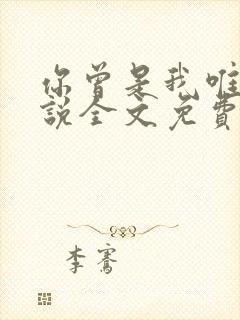 你曾是我唯
說全文免費
李騫